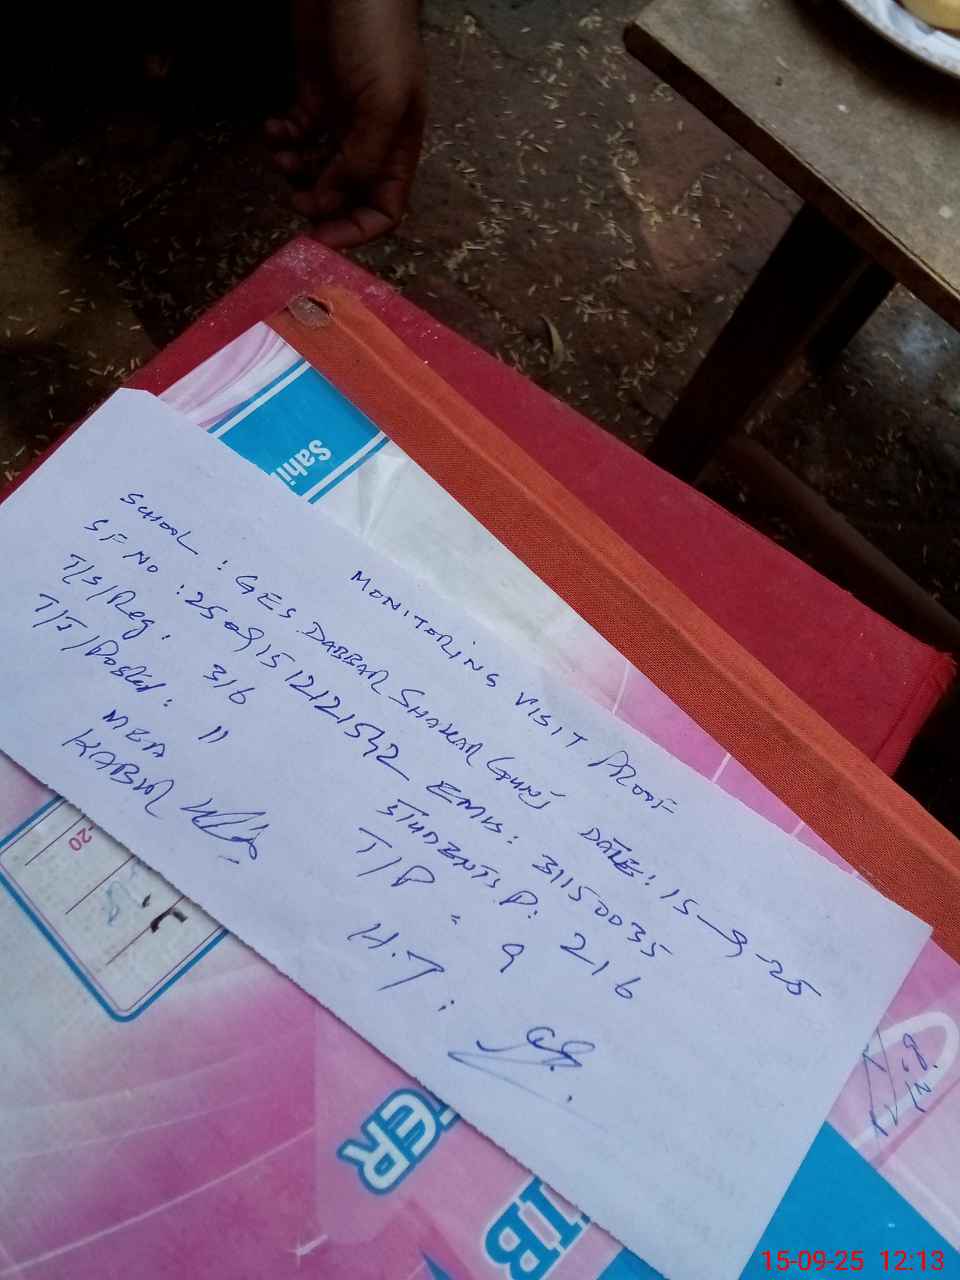 MONITORING VISIT PROOF
SCHOOL : GES DABBAR SHAKAR GUNJ DATE: 15-9-25
SF NO : 25091512121542 EMIS: 31150035
T/S/Reg: 316 STUDENTS P: 216
T/T/Posted: 11 T/P = 9
MEA H.T:
KABIR
Sahi
-20
TER
15-09-25 12:13